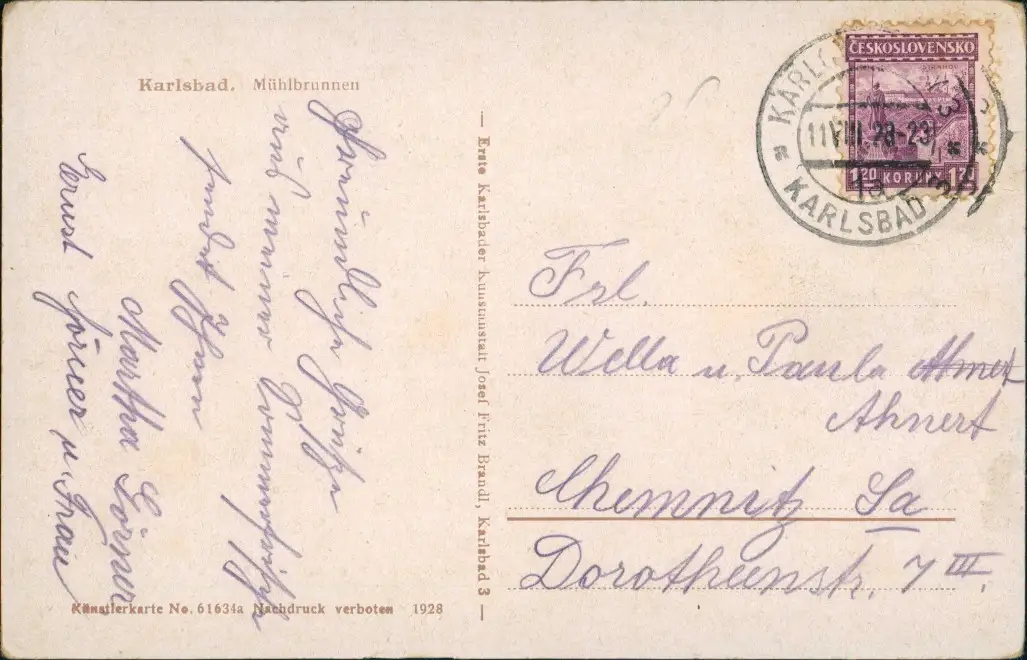 Karlsbad. Mühlbrunnen
Freundliche Grüße
aus meiner Sommerfrische
sendet Ihnen
Martha Görner
Ernst Görner u. Frau
Künstlerkarte No. 61634a Nachdruck verboten 1928
— Erste Karlsbader Kunstanstalt Josef Fritz Brandl, Karlsbad 3 —
ČESKOSLOVENSKO
1.20 KORUNY 1.20
11.VIII.28-23
KARLSBAD 3
Frl.
Wella u. Paula
Ahnert
Chemnitz Sa
Dorotheenstr. 7 III.